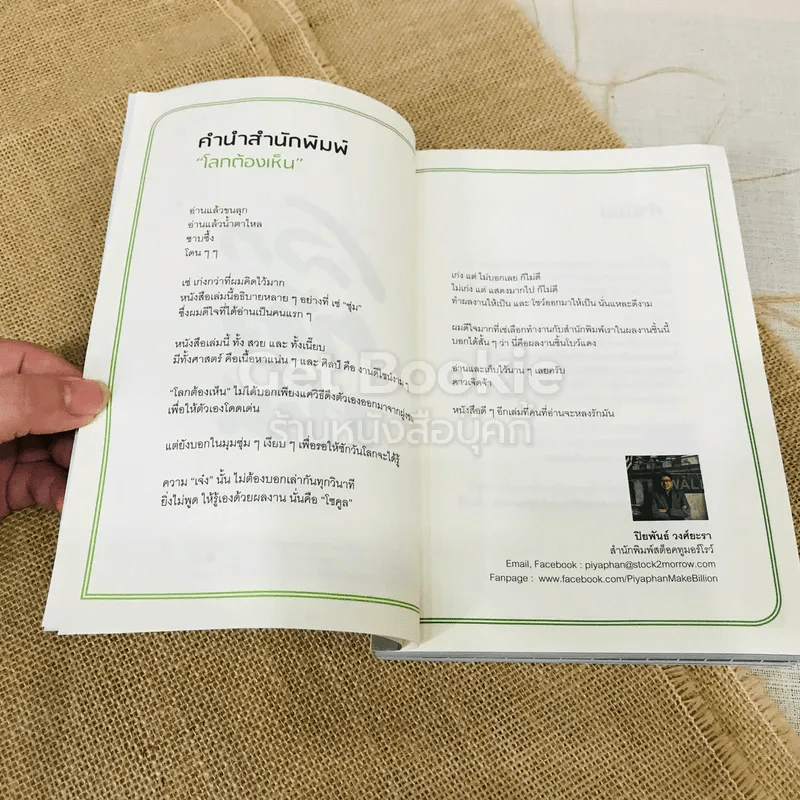 คำนำสำนักพิมพ์
“โลกต้องเห็น”
อ่านแล้วขนลุก
อ่านแล้วน้ำตาไหล
ซาบซึ้ง
โดน ๆ ๆ
เช่ เก่งกว่าที่ผมคิดไว้มาก
หนังสือเล่มนี้อธิบายหลาย ๆ อย่างที่ เช่ “ซุ่ม”
ซึ่งผมดีใจที่ได้อ่านเป็นคนแรก ๆ
หนังสือเล่มนี้ ทั้ง สวย และ ทั้งเนี้ยบ
มีทั้งศาสตร์ คือเนื้อหาแน่น ๆ และ ศิลป์ คือ งานดีไซน์งาม ๆ
“โลกต้องเห็น” ไม่ได้บอกเพียงแค่วิธีดึงตัวเองออกมาจากฝูงชน
เพื่อให้ตัวเองโดดเด่น
แต่ยังบอกในมุมซุ่ม ๆ เงียบ ๆ เพื่อรอให้ซักวันโลกจะได้รู้
ความ “เจ๋ง” นั้น ไม่ต้องบอกเล่ากันทุกวินาที
ยิ่งไม่พูด ให้รู้เองด้วยผลงาน นั่นคือ “โซคูล”
เก่ง แต่ ไม่บอกเลย ก็ไม่ดี
ไม่เก่ง แต่ แสดงมากไป ก็ไม่ดี
ทำผลงานให้เป็น และ โชว์ออกมาให้เป็น นั่นแหละดีงาม
ผมดีใจมากที่เช่เลือกทำงานกับสำนักพิมพ์เราในผลงานชิ้นนี้
บอกได้สั้น ๆ ว่า นี่คือผลงานชิ้นโบว์แดง
อ่านและเก็บไว้นาน ๆ เลยครับ
ดาวเจิดจ้า
หนังสือดี ๆ อีกเล่มที่คนที่อ่านจะหลงรักมัน
ปิยพันธ์ วงศ์ยะรา
สำนักพิมพ์สต็อคทูมอร์โรว์
Email, Facebook : piyaphan@stock2morrow.com
Fanpage : www.facebook.com/PiyaphanMakeBillion
Get Bookie
ร้านหนังสือบุคกี้